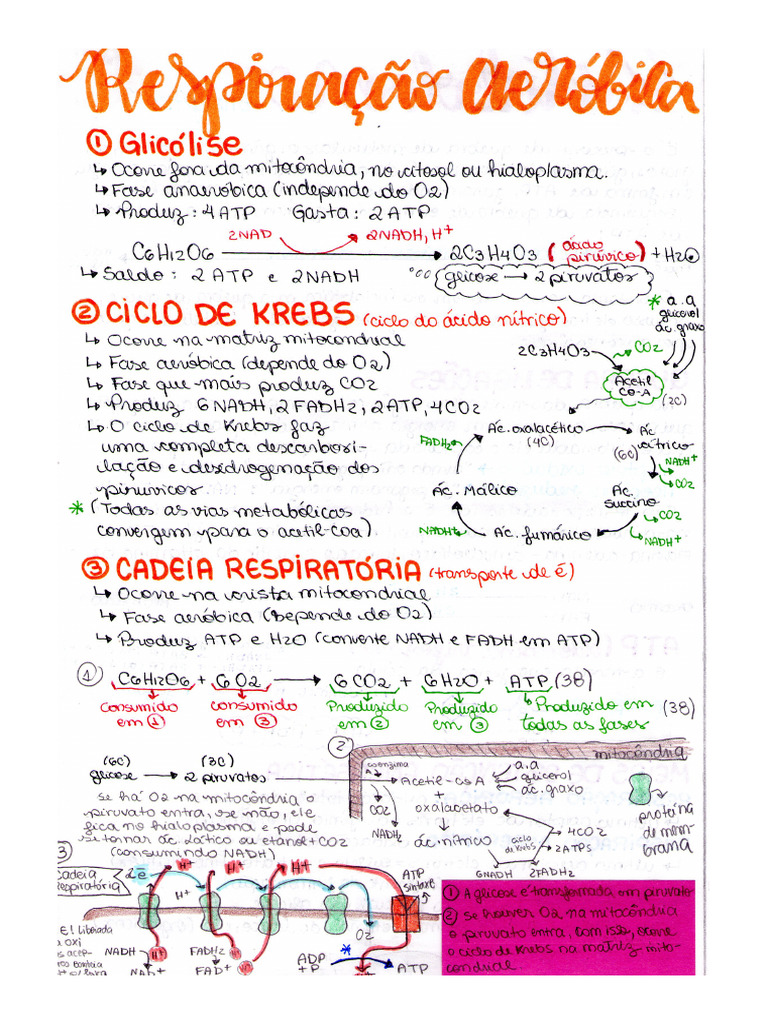 Respiração Aeróbica
① Glicólise
↳ Ocorre fora da mitocôndria, no citosol ou hialoplasma.
↳ Fase anaeróbica (independe do O2)
↳ Produz: 4 ATP Gasta: 2 ATP
2NAD 2NADH, H+
C6H12O6 → 2C3H4O3 (ácido pirúvico) + H2O
↳ Saldo: 2 ATP e 2NADH
glicose → 2 piruvatos
② CICLO DE KREBS (ciclo do ácido nítrico)
↳ Ocorre na matriz mitocondrial
↳ Fase aeróbica (depende do O2)
↳ Fase que mais produz CO2
↳ Produz 6 NADH, 2 FADH2, 2 ATP, 4CO2
↳ O ciclo de Krebs faz
uma completa descarboxi-
lação e desidrogenação dos
pirúvicos
* (Todas as vias metabólicas
convergem para o acetil-coa)
* a.a
glicerol
ác. graxo
2C3H4O3
CO2
Acetil
CO-A
(2C)
Ác. oxalacético
(4C)
Ác
cítrico
(6C)
NADH+
CO2
Ác.
succino
CO2
NADH+
Ác. fumárico
NADH+
Ác. Málico
FADH2
③ CADEIA RESPIRATÓRIA (transporte de é)
↳ Ocorre na crista mitocondrial
↳ Fase aeróbica (Depende do O2)
↳ Produz ATP e H2O (converte NADH e FADH em ATP)
① C6H12O6 + 6O2 → 6CO2 + 6H2O + ATP (38)
Consumido
em ①
consumido
em ③
Produzido
em ②
Produzido
em ③
↳ Produzido em
todas as fases
(38)
②
mitocôndria
(6C) (3C)
glicose → 2 piruvatos
coenzima
A
Acetil-csA
a.a
glicerol
ác. graxo
+
CO2
NADH2
oxalacetato
ác. nítrico
ciclo
de Krebs
4CO2
2ATPs
6NADH
2FADH2
proteína
de mem
brana
se há O2 na mitocôndria o
piruvato entra, se não, ele
fica no hialoplasma e pode
se tornar ác. láctico ou etanol + CO2
(consumindo NADH)
3)
Cadeia
Respiratória
2é
H+ H+ H+
H+
ATP
sintaxe
E! Liberada
NADH → NAD+
H+
FADH2 → FAD+
H+
O2
*
ADP
+P
ATP
① A glicose é transformada em piruvato
② Se houver O2 na mitocôndria
o piruvato entra, com isso, ocorre
o ciclo de Krebs na matriz mito-
condrial